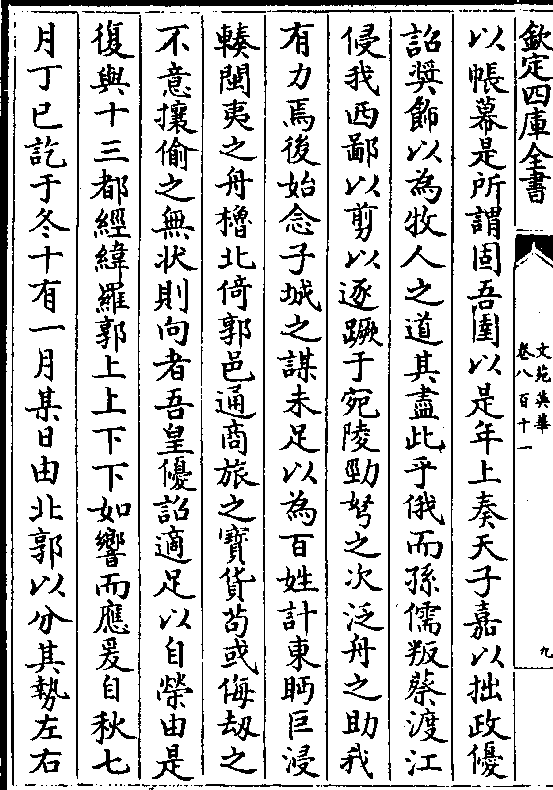 欽定四庫全書
文苑英華
卷八百十一
九
以帳幕是所謂固吾圉以是年上奏天子嘉以拙政優
詔奨飾以為牧人之道其盡此乎俄而孫儒叛蔡渡江
侵我西鄙以剪以逐蹶于宛陵勁弩之次泛舟之助我
有力焉後始念子城之謀未足以為百姓計東眄巨浸
輳閩夷之舟櫓北倚郭邑通商旅之寳貨苟或侮刼之
不意攘偷之無狀則向者吾皇優詔適足以自榮由是
復與十三都經緯羅郭上上下下如響而應爰自秋七
月丁巳訖于冬十有一月某日由北郭以分其勢左右